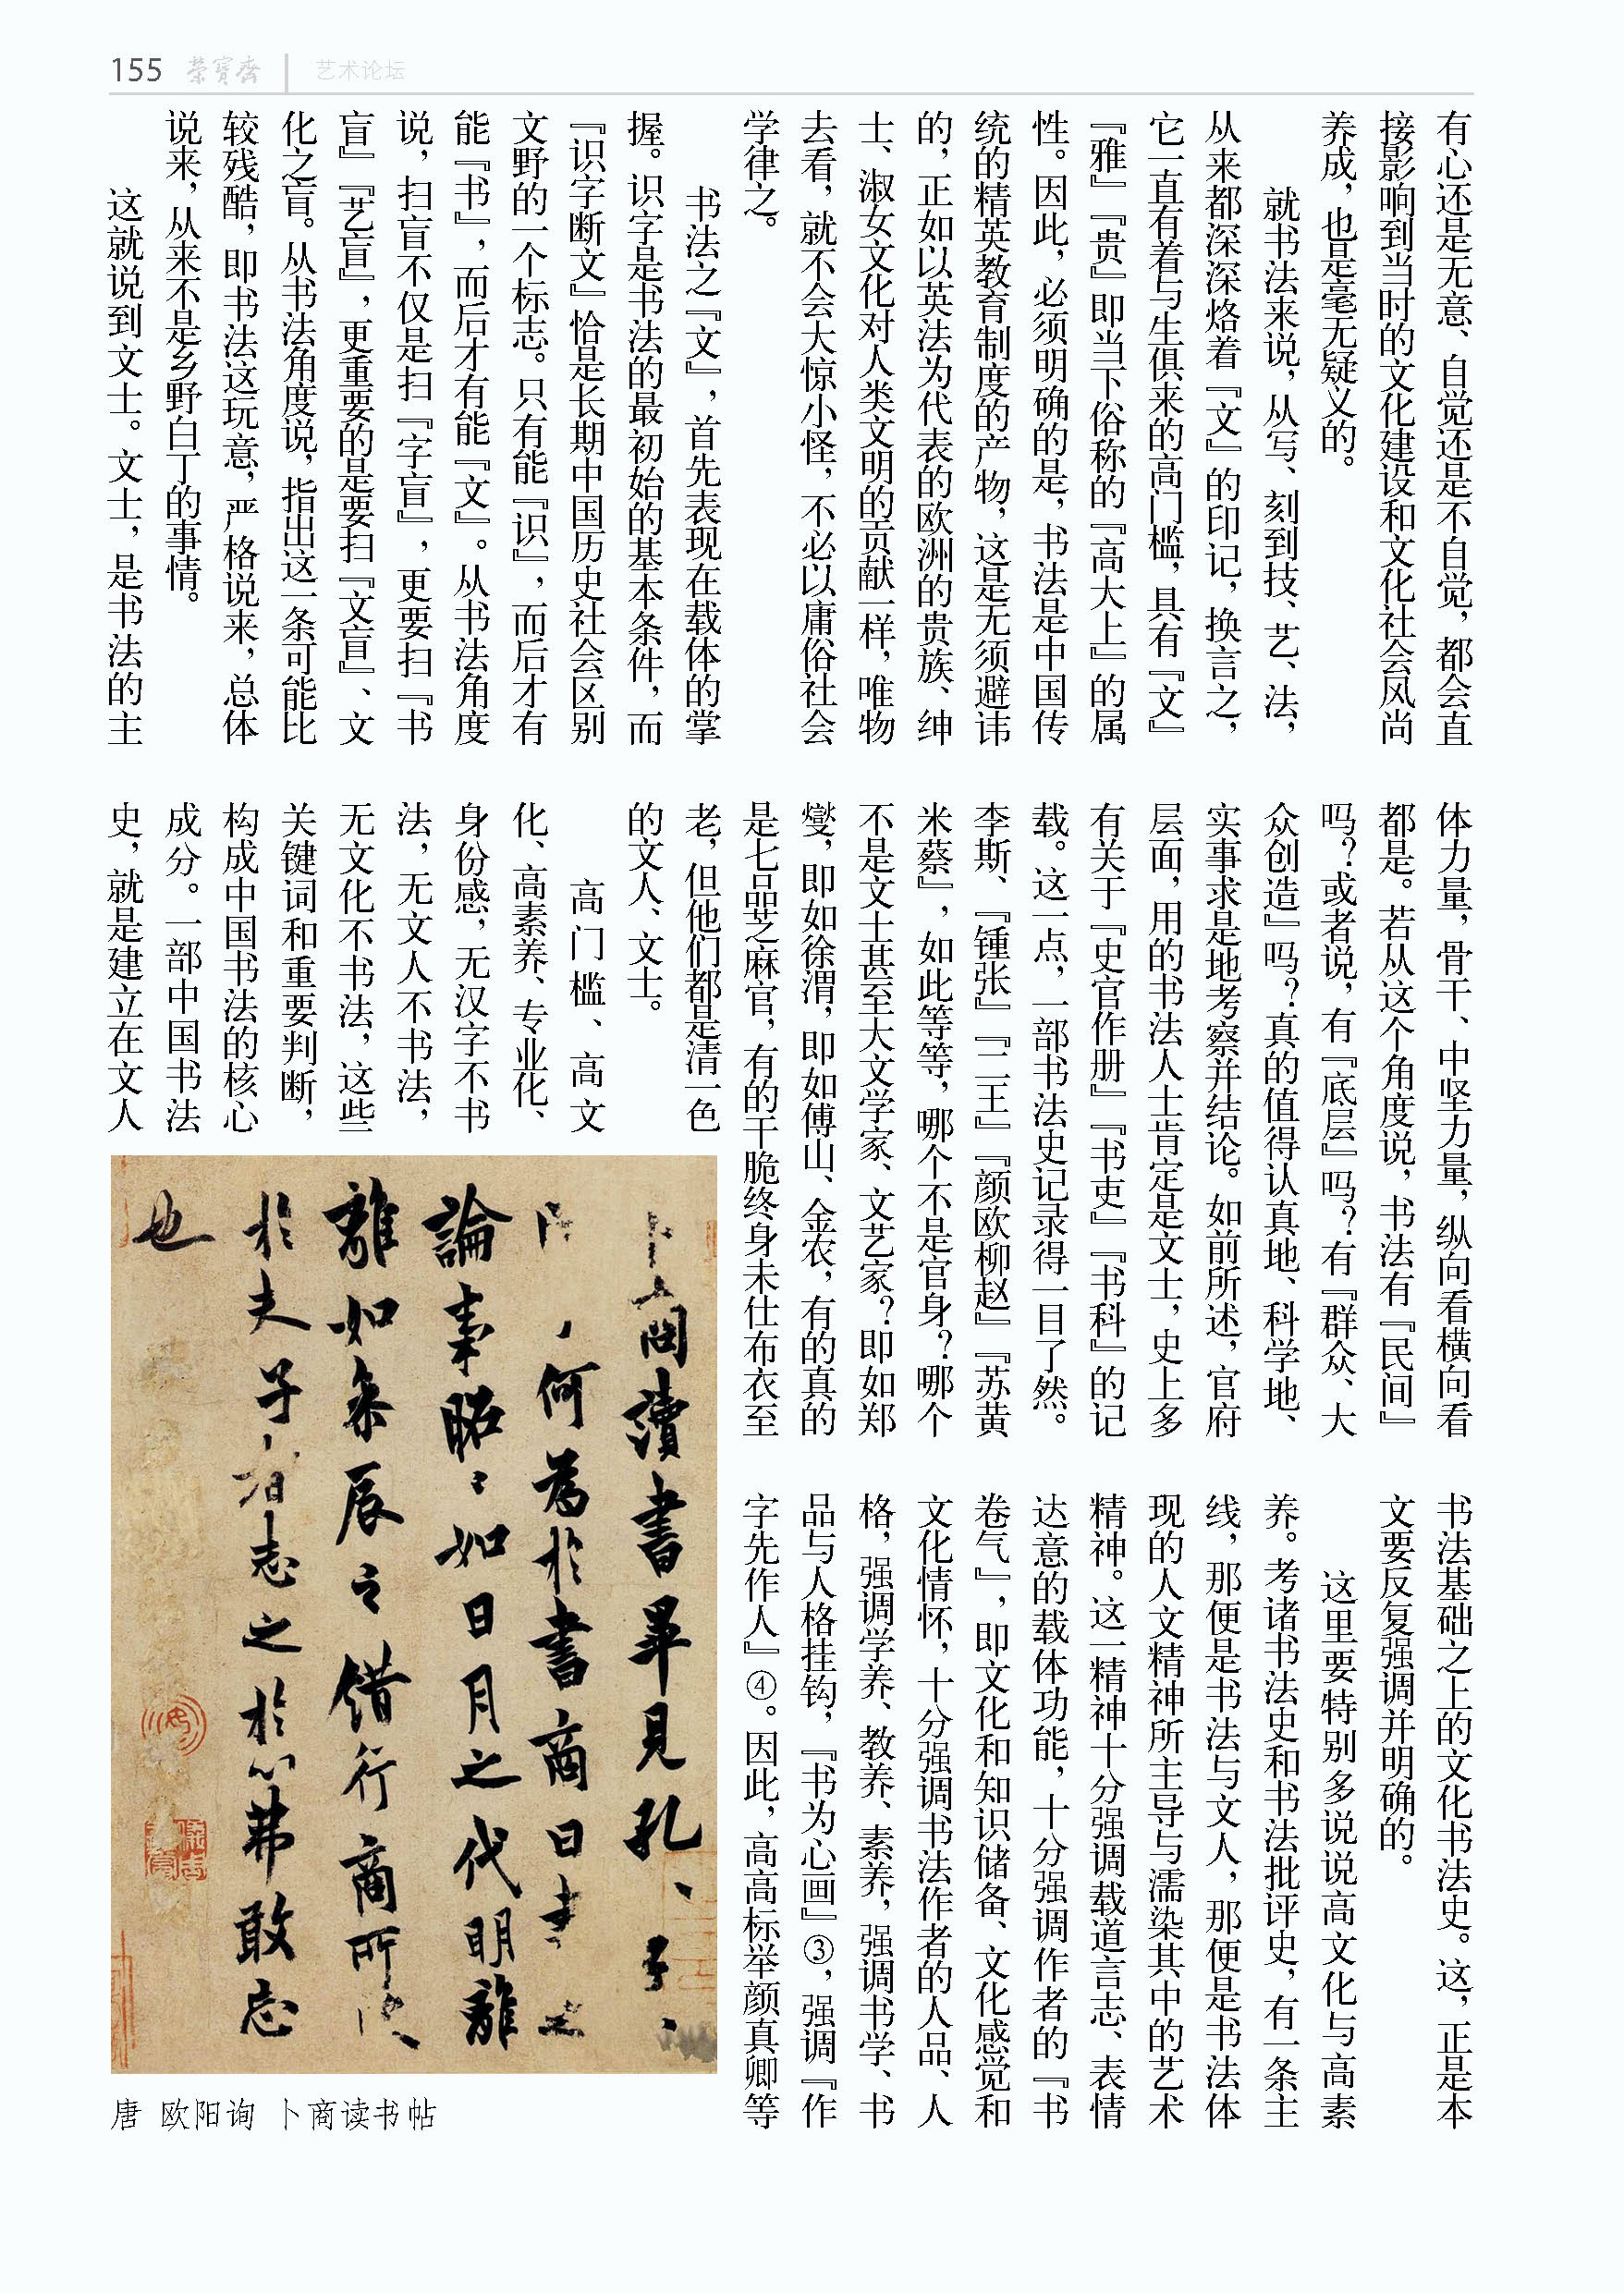 155 榮寶齋 艺术论坛
有心还是无意、自觉还是不自觉，都会直
接影响到当时的文化建设和文化社会风尚
养成，也是毫无疑义的。
就书法来说，从写、刻到技、艺、法，
从来都深深烙着『文』的印记，换言之，
它一直有着与生俱来的高门槛，具有『文』
『雅』『贵』即当下俗称的『高大上』的属
性。因此，必须明确的是，书法是中国传
统的精英教育制度的产物，这是无须避讳
的，正如以英法为代表的欧洲的贵族、绅
士、淑女文化对人类文明的贡献一样，唯物
去看，就不会大惊小怪，不必以庸俗社会
学律之。
书法之『文』，首先表现在载体的掌
握。识字是书法的最初始的基本条件，而
『识字断文』恰是长期中国历史社会区别
文野的一个标志。只有能『识』，而后才有
能『书』，而后才有能『文』。从书法角度
说，扫盲不仅是扫『字盲』，更要扫『书
盲』『艺盲』，更重要的是要扫『文盲』、文
化之盲。从书法角度说，指出这一条可能比
较残酷，即书法这玩意，严格说来，总体
说来，从来不是乡野白丁的事情。
这就说到文士。文士，是书法的主
体力量，骨干、中坚力量，纵向看横向看
都是。若从这个角度说，书法有『民间』
吗？或者说，有『底层』吗？有『群众、大
众创造』吗？真的值得认真地、科学地、
实事求是地考察并结论。如前所述，官府
层面，用的书法人士肯定是文士，史上多
有关于『史官作册』『书吏』『书科』的记
载。这一点，一部书法史记录得一目了然。
李斯、『锺张』『二王』『颜欧柳赵』『苏黄
米蔡』，如此等等，哪个不是官身？哪个
不是文士甚至大文学家、文艺家？即如郑
燮，即如徐渭，即如傅山、金农，有的真的
是七品芝麻官，有的干脆终身未仕布衣至
老，但他们都是清一色
的文人、文士。
高门槛、高文
化、高素养、专业化、
身份感，无汉字不书
法，无文人不书法，
无文化不书法，这些
关键词和重要判断，
构成中国书法的核心
成分。一部中国书法
史，就是建立在文人
书法基础之上的文化书法史。这，正是本
文要反复强调并明确的。
这里要特别多说说高文化与高素
养。考诸书法史和书法批评史，有一条主
线，那便是书法与文人，那便是书法体
现的人文精神所主导与濡染其中的艺术
精神。这一精神十分强调载道言志、表情
达意的载体功能，十分强调作者的『书
卷气』，即文化和知识储备、文化感觉和
文化情怀，十分强调书法作者的人品、人
格，强调学养、教养、素养，强调书学、书
品与人格挂钩，『书为心画』③，强调『作
字先作人』④。因此，高高标举颜真卿等
卜商讀書畢見孔、子、
，何為於書商曰書之
論事昭﹦如日月之代明離
離如參辰之錯行商所受
於夫子者志之於心弗敢忘
也
唐 欧阳询 卜商读书帖